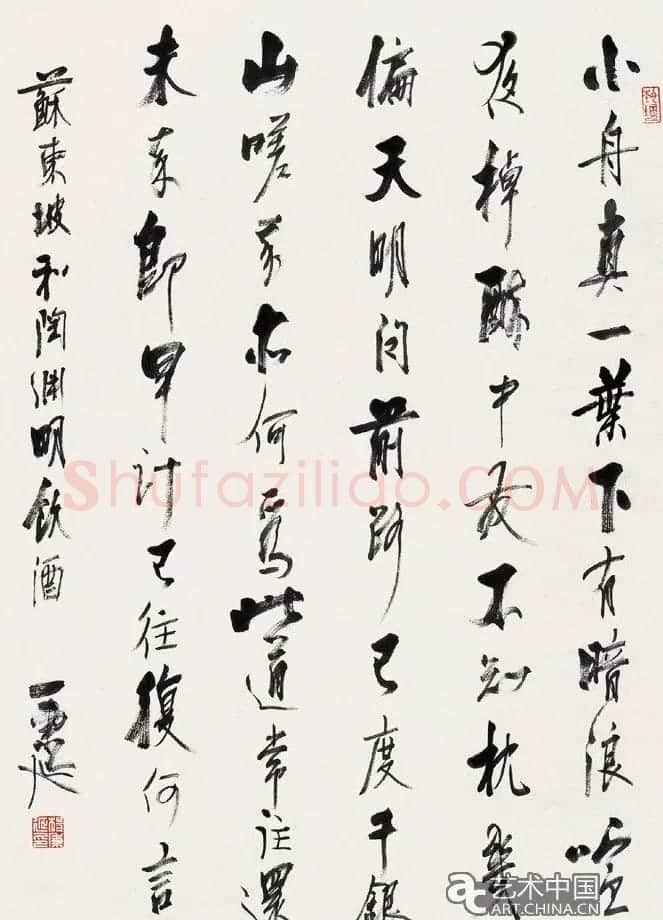 小舟真一葉下有暗浪喧
夜棹醉中發不知枕幾
偏天明问前路已度千銀
山嗟我亦何為此道常往還
未來即早計已往復何言
蘇東坡和陶淵明飲酒
Shufaziliao.COM
艺术中国
ART.CHINA.CN